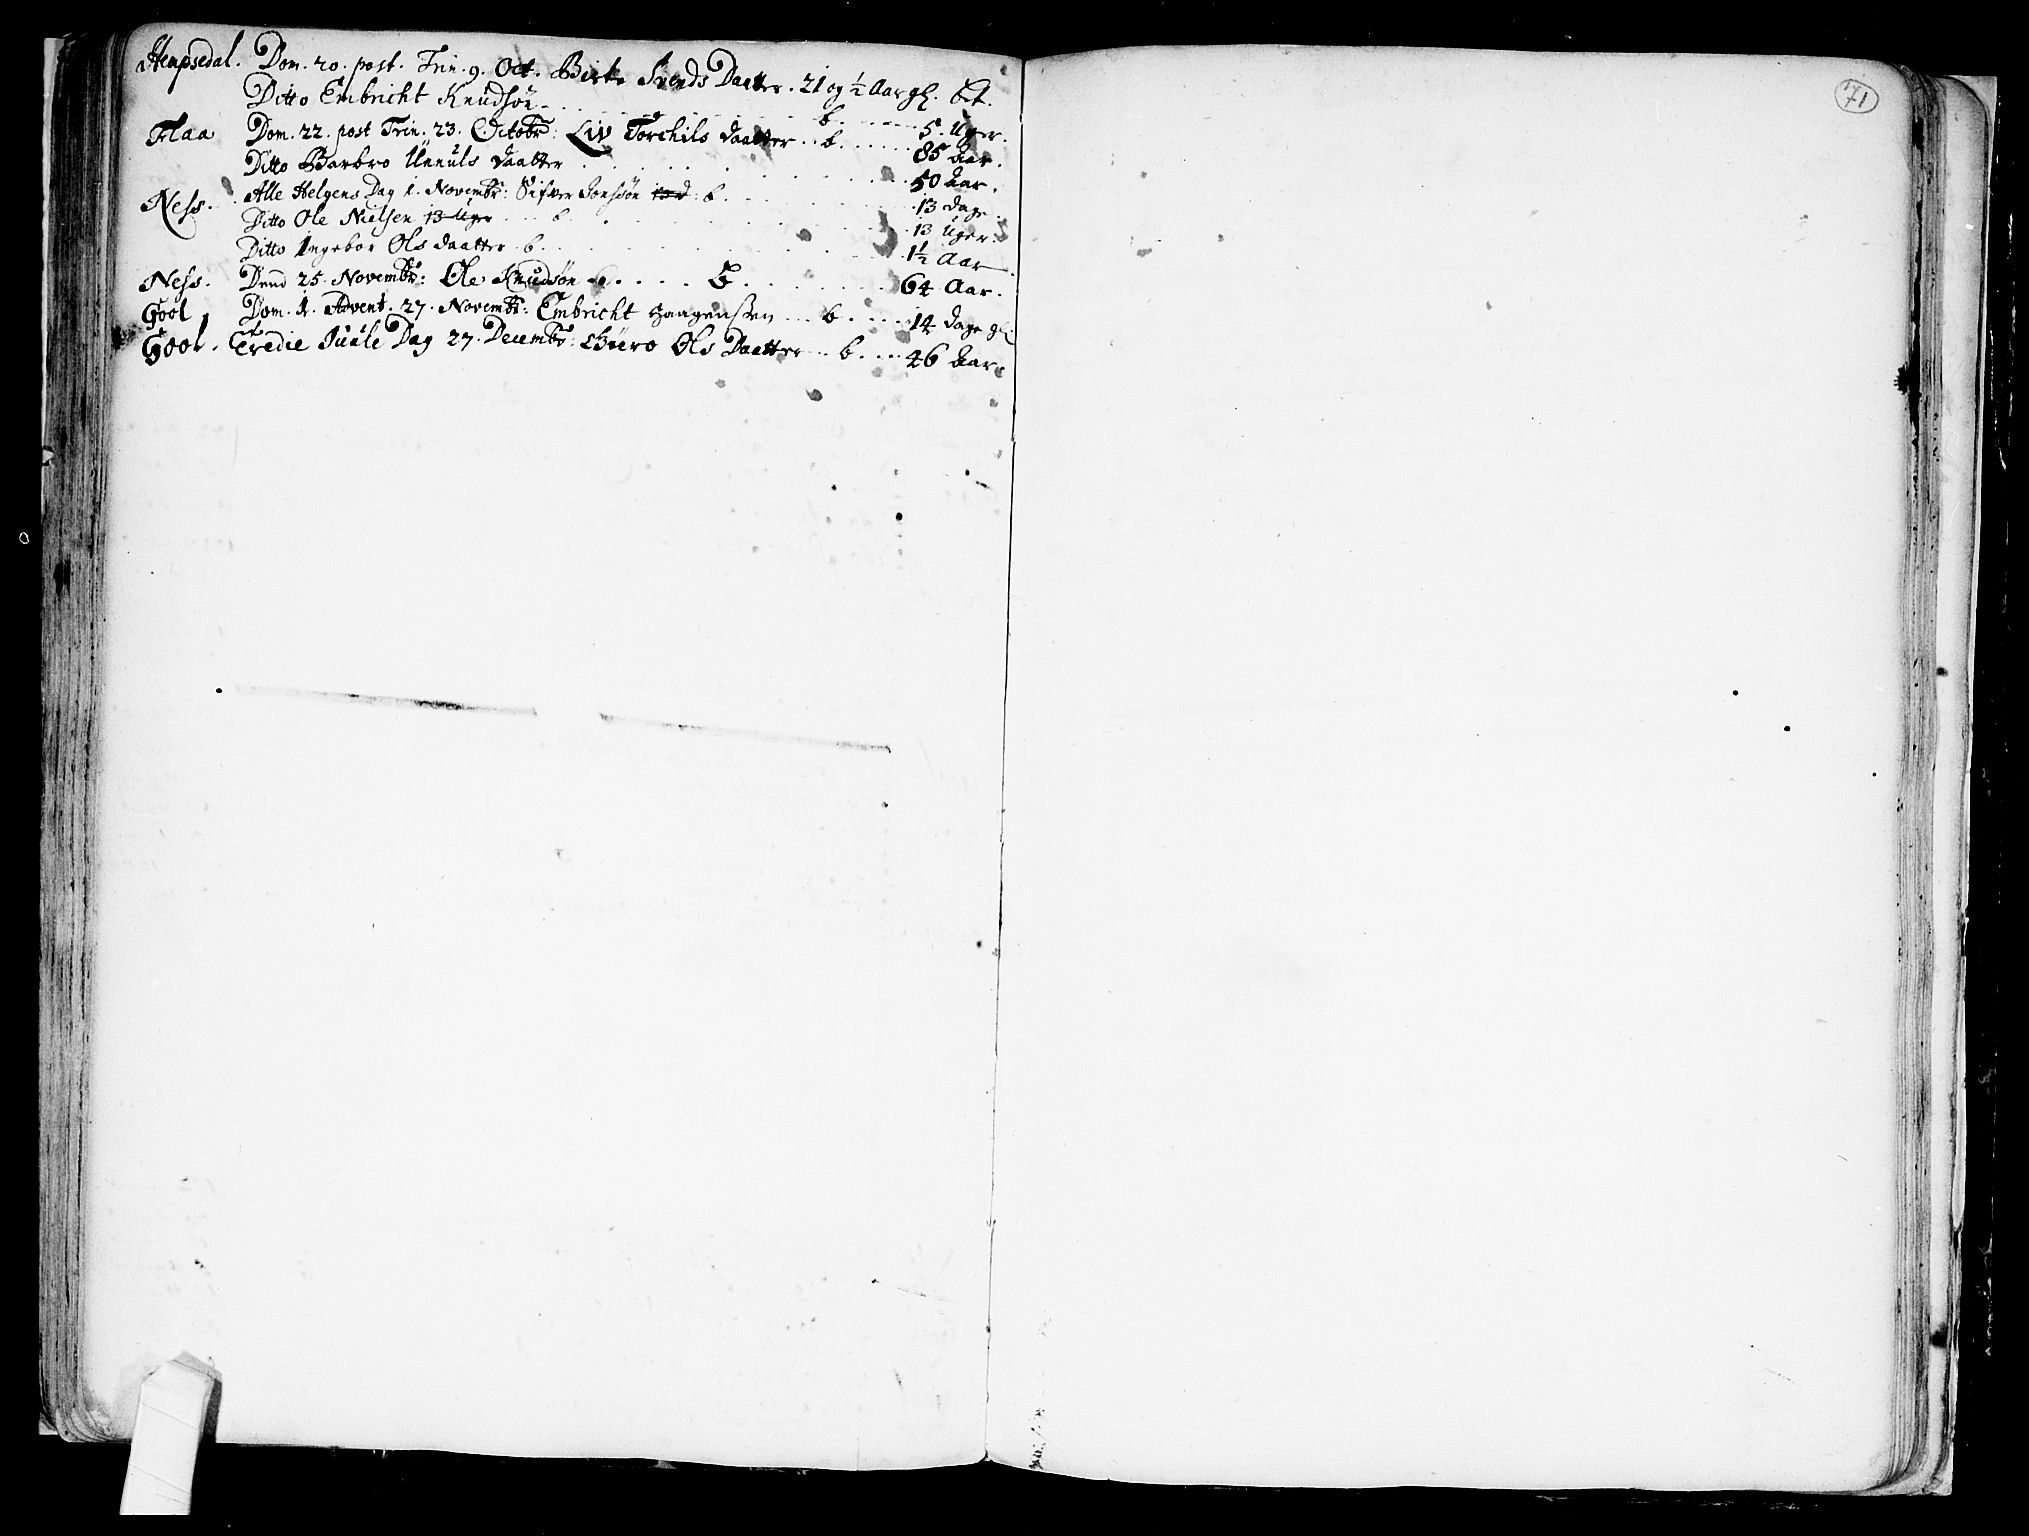 71
Hempsedal. Dom. 20. post. Trin. 9. Oct. Birte Svends Daatter. 21 og ½ Aar gl. bet.
Ditto Embricht Knudsøn . . . . b. . . . . 5. Uger.
Flaa Dom. 22. post Trin. 23. Octobr: Liv Torchils daatter . . b. . . . . . 85 Aar.
Ditto Barbro Unnuls daatter . . . . . . . . . 50 Aar.
Ness. Alle Helgens Dag 1. Novembr: Sifver 13 d: b. . . . . . . 13 dage.
Ditto Ole Nielsen 13 Uger . . . . b. . . . . . . . 13 Uger.
Ditto Ingebor Ols daatter . b. . . . . . . . . 1½ Aar
Ness. Dend 25. Novembr: Ole Knudsøn . . . . . b. . . . . . . . 64 Aar.
Gool Dom. 1. Advent. 27. Novembr: Embricht Haagenssen . . . b. . . . . 14 dage gl:
Gool. Tredie Juule Dag 27. Decembr: Ols Daatter . . b. . . . 46 Aar.